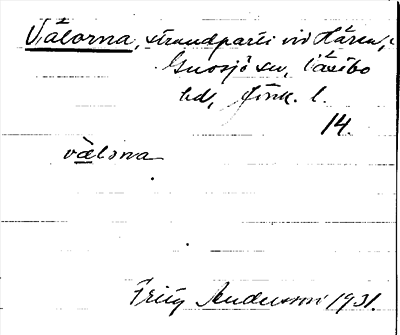 Vålorna, strandparti vid Hären, i
Gnosjö sn, Västbo
hd, Jönk. l.
14
välorna
Fritz Andersson 1931.